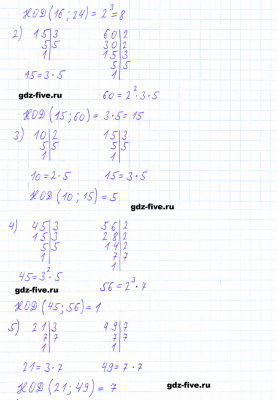 НОД(16; 24) = 2³ = 8
2) 15|3 60|2
5|5 30|2
1| 15|3
5|5
15 = 3·5 1|
60 = 2²·3·5
gdz-five.ru
НОД(15; 60) = 3·5 = 15
gdz-five.ru
3) 10|2 15|3
5|5 5|5
1| 1|
10 = 2·5 15 = 3·5
НОД(10; 15) = 5
gdz-five.ru
4) 45|3 56|2
15|3 28|2
5|5 14|2
1| 7|7
1|
45 = 3²·5
56 = 2³·7
gdz-five.ru
НОД(45; 56) = 1
5) 21|3 49|7
7|7 7|7
1| 1|
21 = 3·7 49 = 7·7
НОД(21; 49) = 7
gdz-five.ru